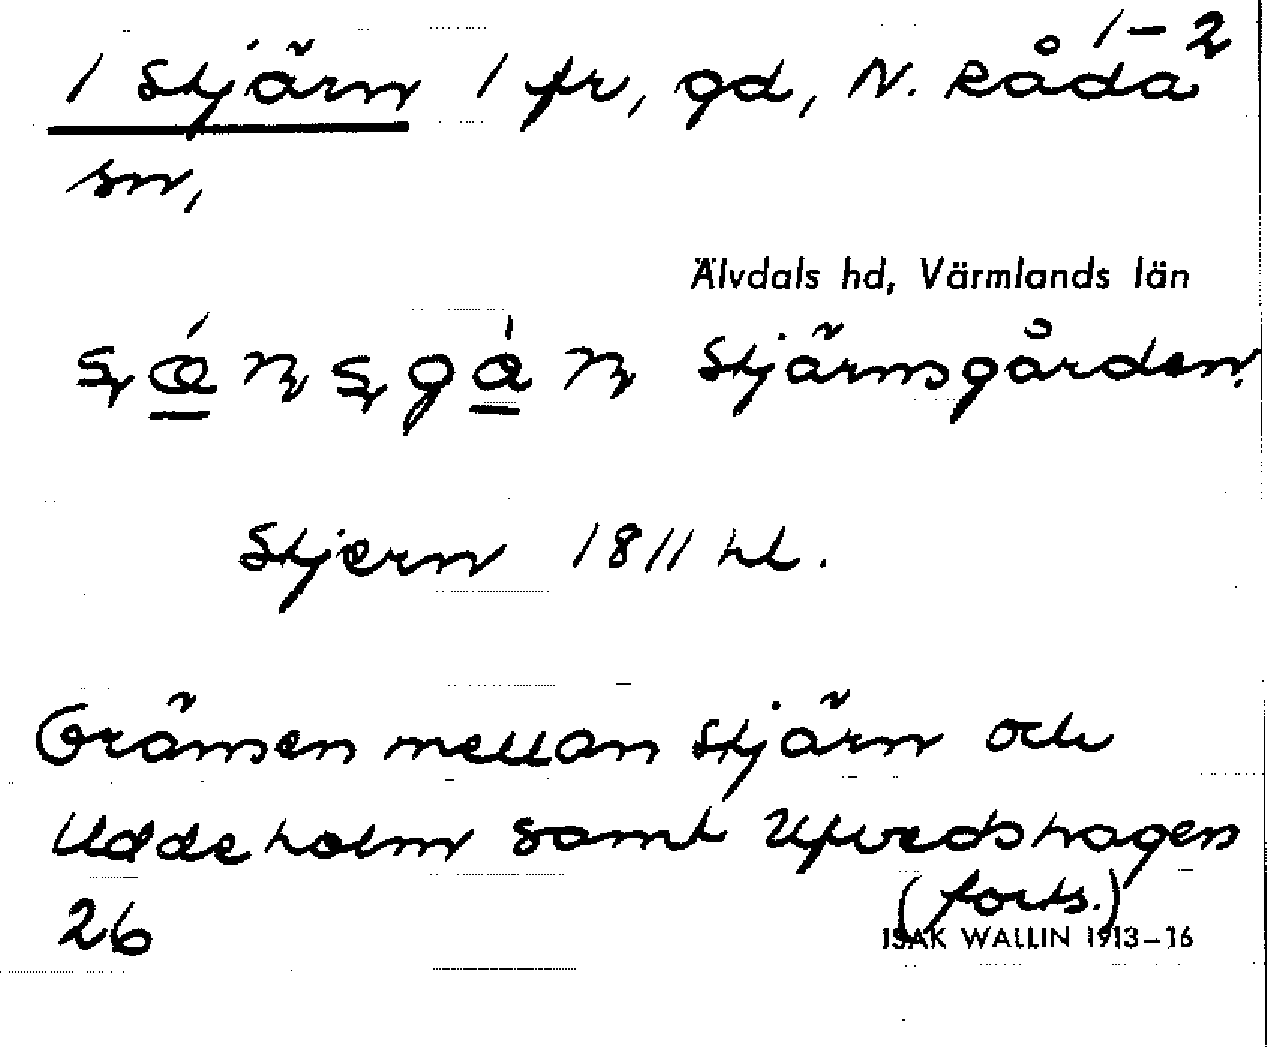 1-2
1 Stjärn 1 fr, gd, N. Råda
sn,
Älvdals hd, Värmlands län
Stjärnsgården.
Stjern 1811 hl.
Gränsen mellan Stjärn och
Uddeholm samt Ufvedshagen
(forts.)
26
ISAK WALLIN 1913–16